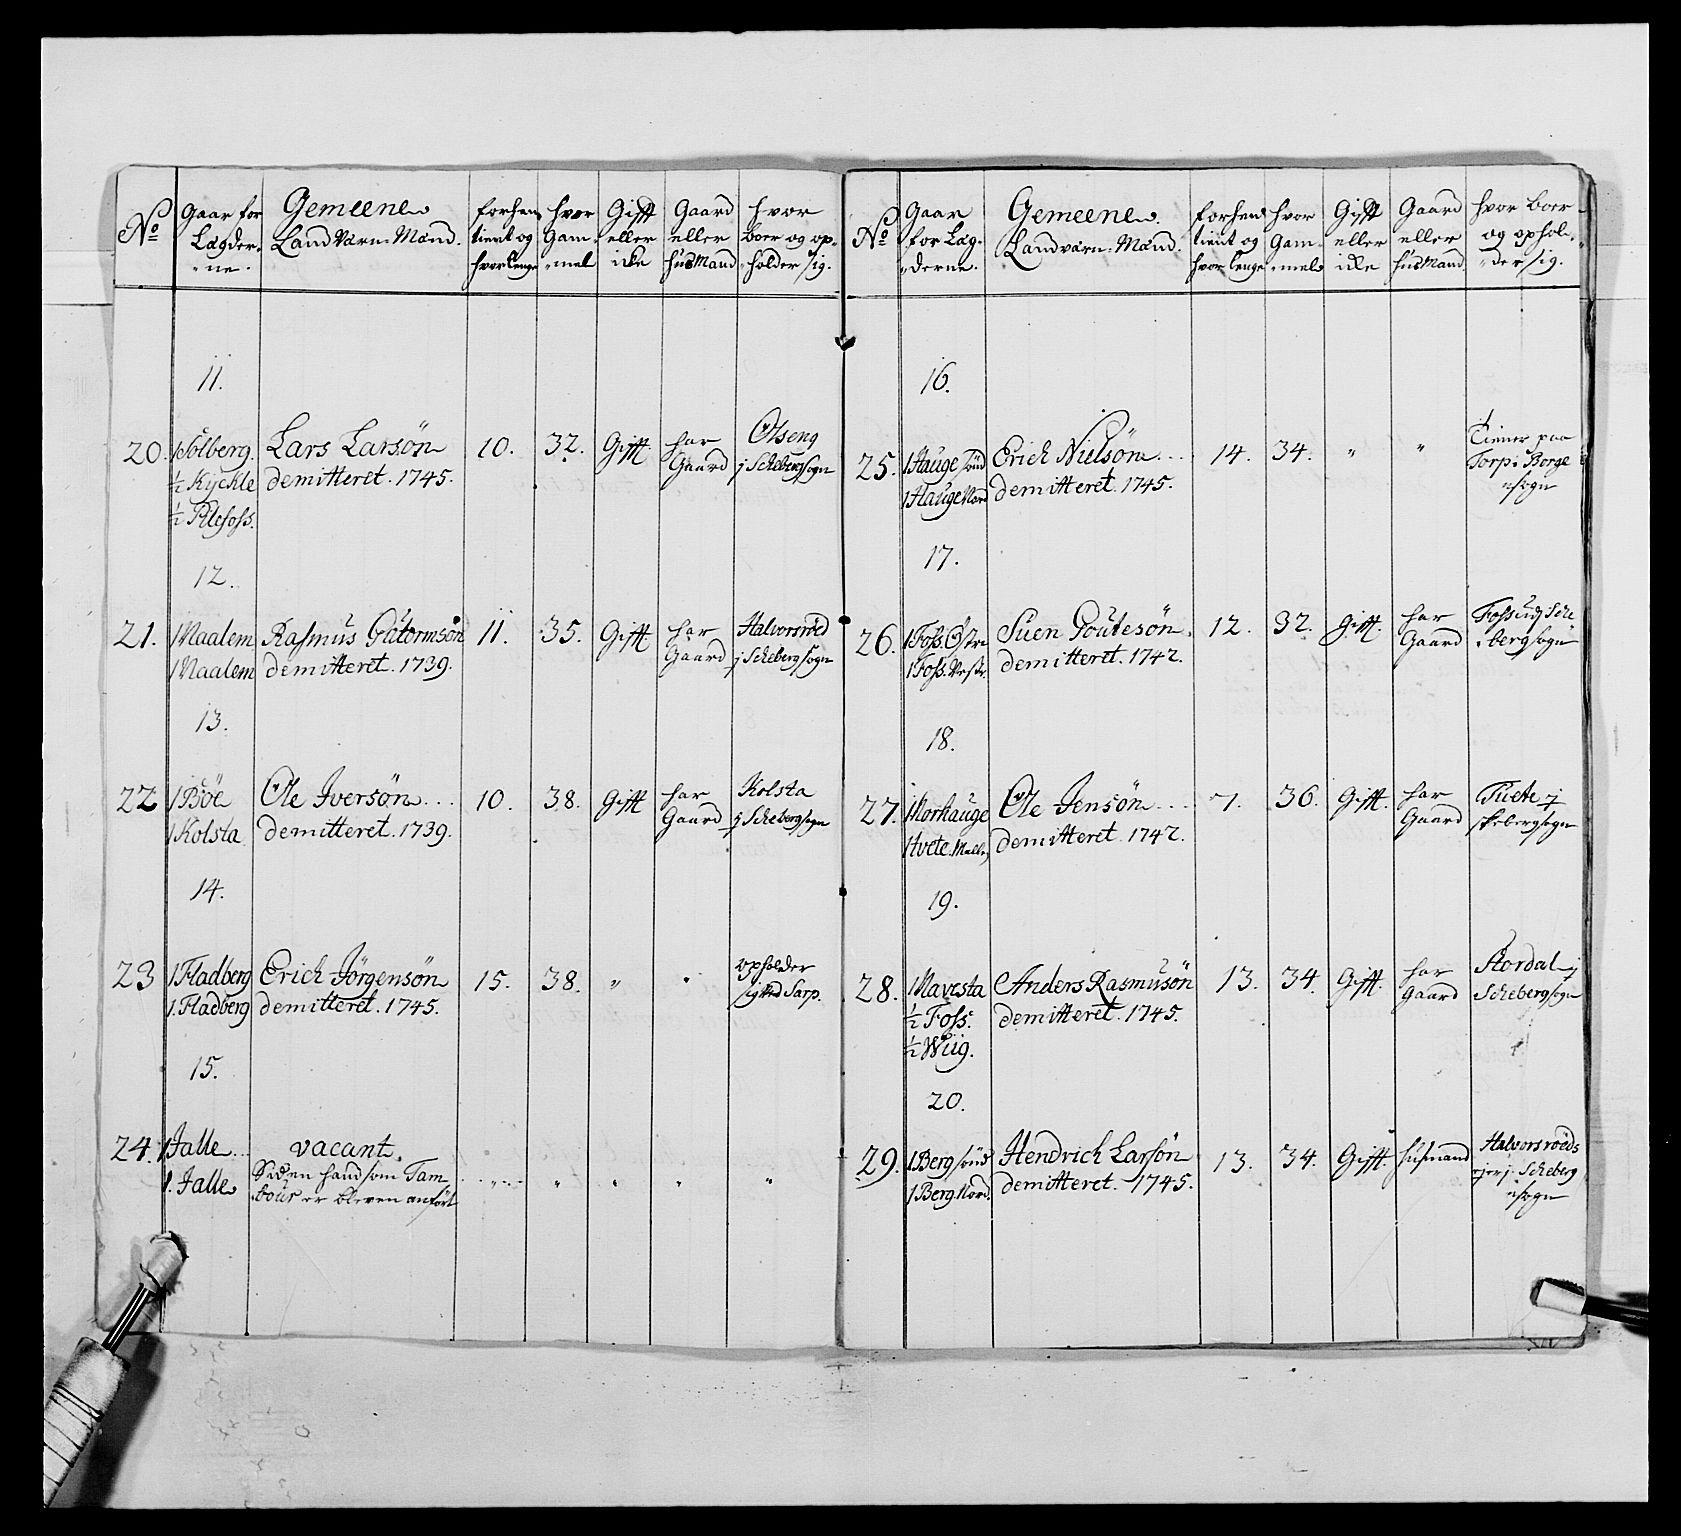 No
Gaar for
Lægder-
ne.
Gemeene
Land Værn. Mænd.
forhen
tient og
hvor lenge
hvor
Gam-
mel
Gift
eller
ikke
Gaard
eller
huusMand
hvor
boer og op-
holder sig.
11.
20. 1 Solberg. Lars Larsøn 10. 32. Gift. har Olseng
½ Kychle demitteret. 1745. Gaard j Schebergsogn
½ Pilefoss.
12.
21. 1 Maalem Rasmus Gutormsøn 11. 35. Gift har Halvorsrøed
1 Maalem demitteret. 1739. Gaard j Schebergsogn
13.
22 1 Böe Ole Iversøn 10. 38. Gift har Kolsta
1 Kolsta demitteret. 1739. Gaard j Schebergsogn
14.
23 1 Fladberg Erich Jörgensøn 15. 38. " " opholder
1. Fladberg demitteret. 1745. sig ved Sarp.
15.
24. 1 Jalle vacant.
1. Jalle Siden hand som Tam- " " " " "
bour er bleven anfört
No
Gaar
for Læg-
derne.
Gemeene
Landværn. Mænd.
forhen
tient og
hvor lenge
hvor
Gam-
mel
Gift
eller
ikke
Gaard
eller
huusMand
hvor boer
og ophol-
der sig.
16.
25. 1 Hauge sönd Erich Nielsøn 14. 34. " " Tiener paa
1 Hauge Nord demitteret. 1745. Torp i Borge
sogn
17.
26. 1 Foss. Östre Suen Poulesøn. 12. 32. gift. har Foss udj Sche-
1 Foss. Vestr. demitteret. 1742. Gaard bergsogn
18.
27. 1 Morhauge Ole Jensøn 7. 36. Gift. har Tuete j
1 tvete. Melle demitteret. 1742. Gaard skebergsogn
19.
28. 1 Navesta Anders Rasmusøn 13. 34. Gift. har Stordal j
½ Foss. demitteret. 1745. Gaard Schebergsogn
½ Wiig.
20.
29. 1 Berg sönd Hendrich Larsøn 13. 34. Gift. husmand Halvorsrøeds
1 Berg. Nord. demitteret. 1745. ejer j. Scheberg
sogn